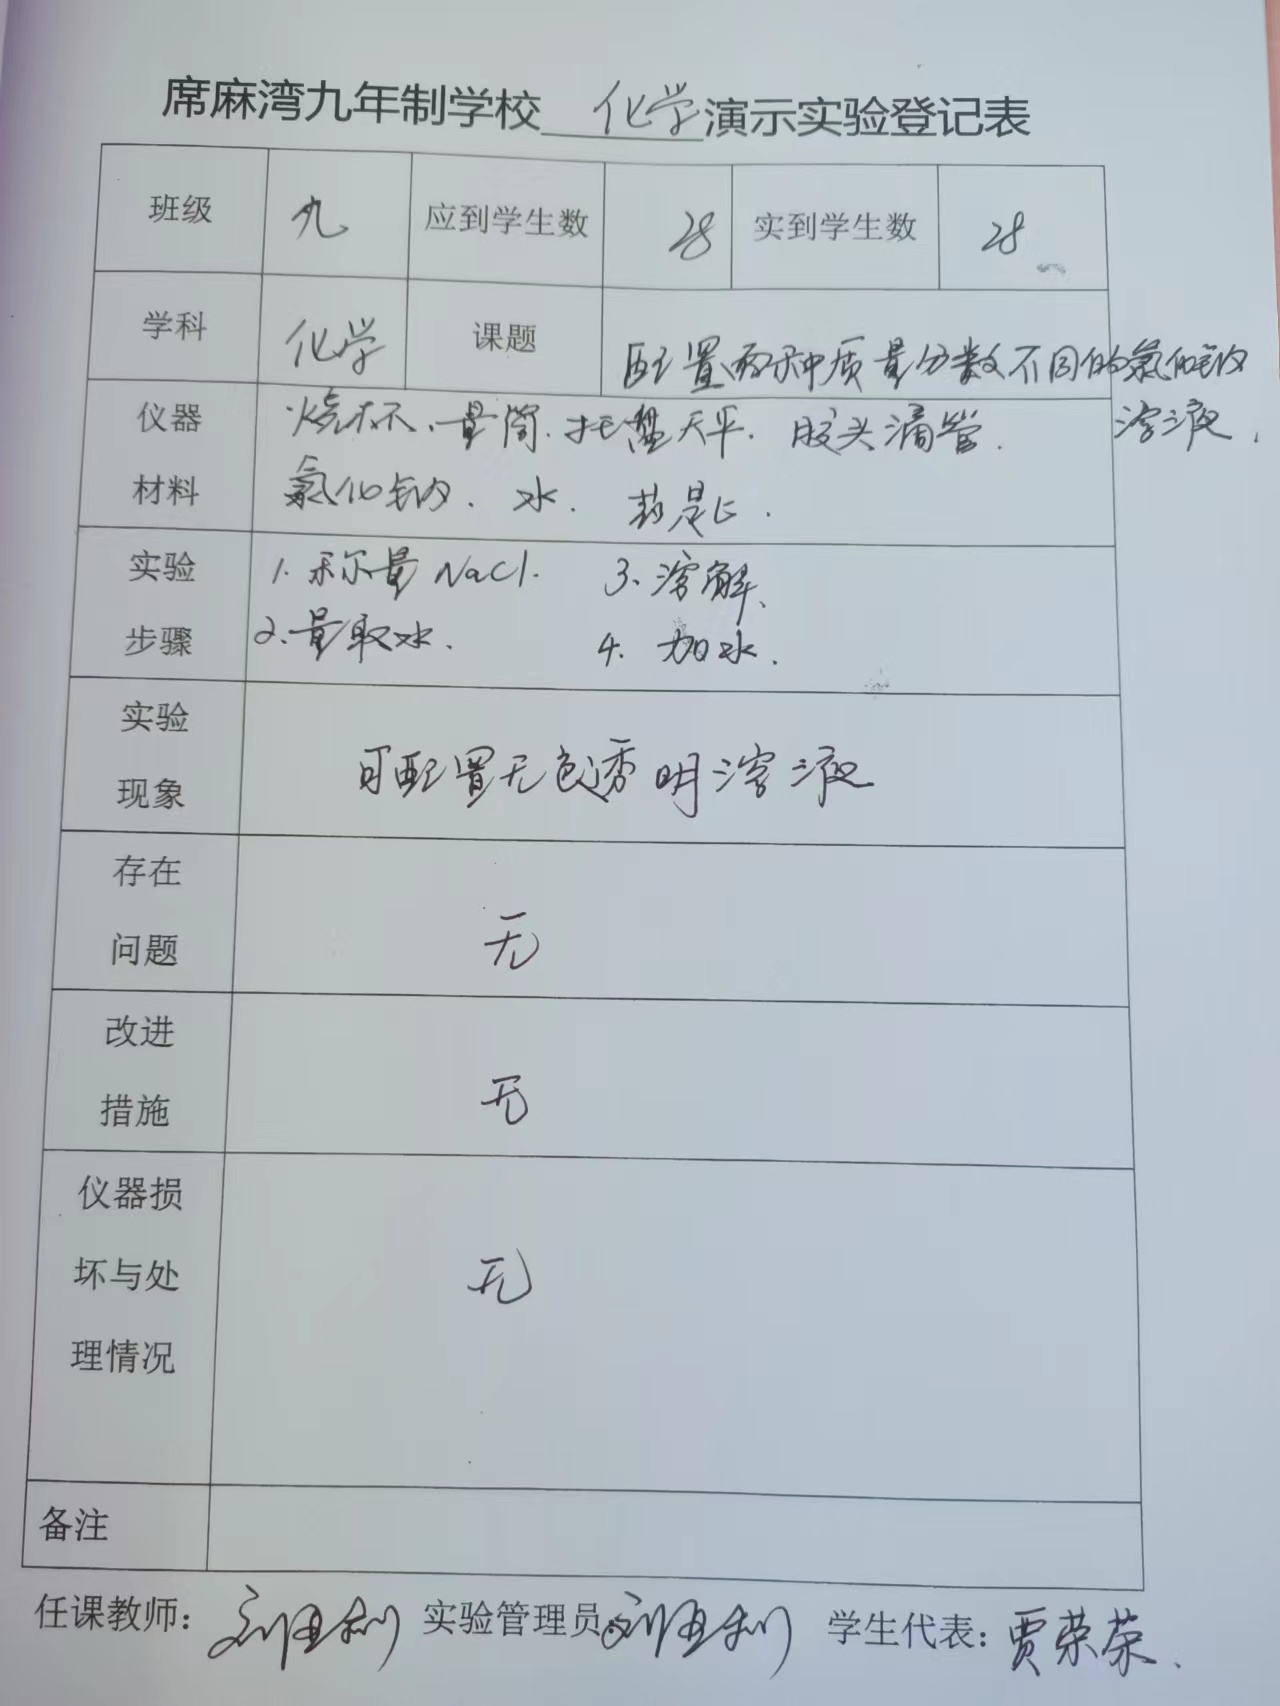 席麻湾九年制学校 化学 演示实验登记表
班级 九 应到学生数 28 实到学生数 28
学科 化学 课题 配置两种质量分数不同的氯化钠
溶液.
仪器 烧杯、量筒、托盘天平、胶头滴管.
材料 氯化钠、水、药匙.
实验 1. 称量NaCl. 3、溶解、
步骤 2、量取水. 4. 加水.
实验
现象 可配置无色透明溶液
存在
问题 无
改进
措施 无
仪器损
坏与处 无
理情况
备注
任课教师: 实验管理员: 学生代表: 贾荣荣.